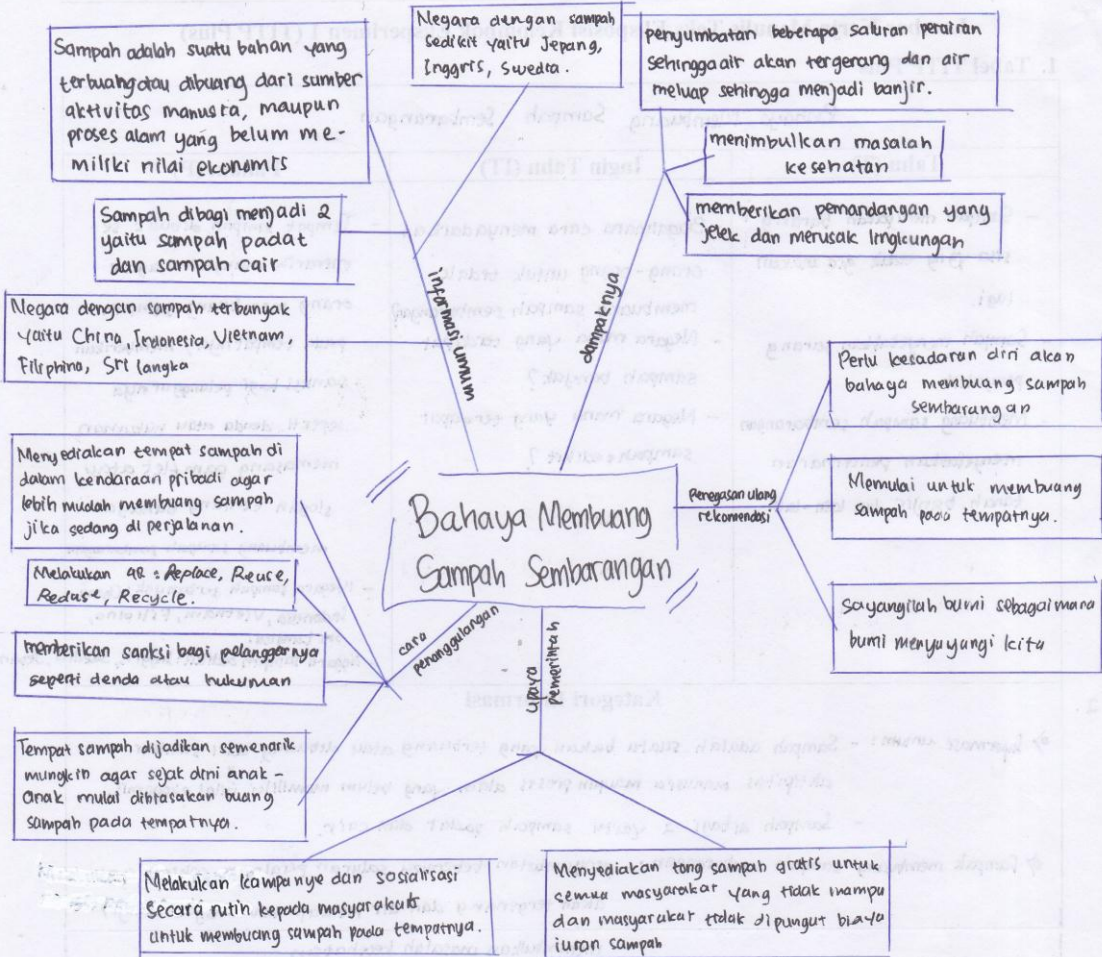 Negara dengan sampah
sedikit yaitu Jepang,
Inggris, Swedia.
Sampah adalah suatu bahan yang
terbuang atau dibuang dari sumber
aktivitas manusia, maupun
proses alam yang belum me-
miliki nilai ekonomis
Sampah dibagi menjadi 2
yaitu sampah padat
dan sampah cair
Negara dengan sampah terbanyak
yaitu China, Indonesia, Vietnam,
Filiphina, Sri langka
informasi umum
Penyumbatan beberapa saluran perairan
sehingga air akan tergenang dan air
meluap sehingga menjadi banjir.
menimbulkan masalah
kesehatan
memberikan pemandangan yang
jelek dan merusak lingkungan
dampaknya
Bahaya Membuang
Sampah Sembarangan
Penegasan ulang
rekomendasi
Perlu kesadaran diri akan
bahaya membuang sampah
sembarangan
Memulai untuk membuang
sampah pada tempatnya.
Sayangilah bumi sebagaimana
bumi menyayangi kita
cara
penanggulangan
Menyediakan tempat sampah di
dalam kendaraan pribadi agar
lebih mudah membuang sampah
jika sedang di perjalanan.
Melakukan 4R : Replace, Reuse,
Reduse, Recycle.
memberikan sanksi bagi pelanggarnya
seperti denda atau hukuman
Tempat sampah dijadikan semenarik
mungkin agar sejak dini anak -
anak mulai dibiasakan buang
sampah pada tempatnya.
upaya
Pemerintah
Melakukan kampanye dan sosialisasi
secara rutin kepada masyarakat
untuk membuang sampah pada tempatnya.
Menyediakan tong sampah gratis untuk
semua masyarakat yang tidak mampu
dan masyarakat tidak dipungut biaya
iuran sampah